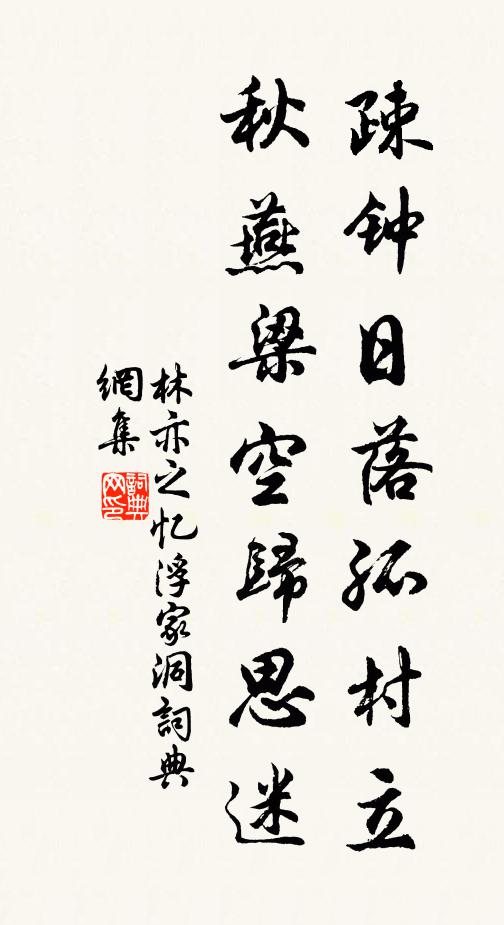 疎钟日落孤村立
秋燕梁空歸思迷
林亦之忆浮家洞詞典
網集
詞典
网印